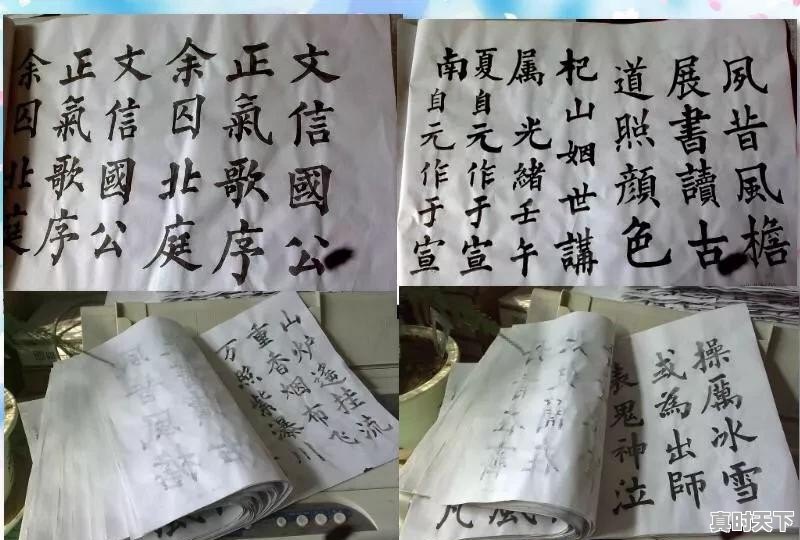 文信國公
正氣歌序
余囚北庭
文信國公
正氣歌序
余囚北庭
夙昔風檐
展書讀古
道照顏色
杞山姻世講
属光緒壬午
夏自元作于宣
南自元作于宣
山炉遥挂流
重香烟布飞
万照紫瀑川
操厲冰雪
或為出師
表鬼神泣
真时天下